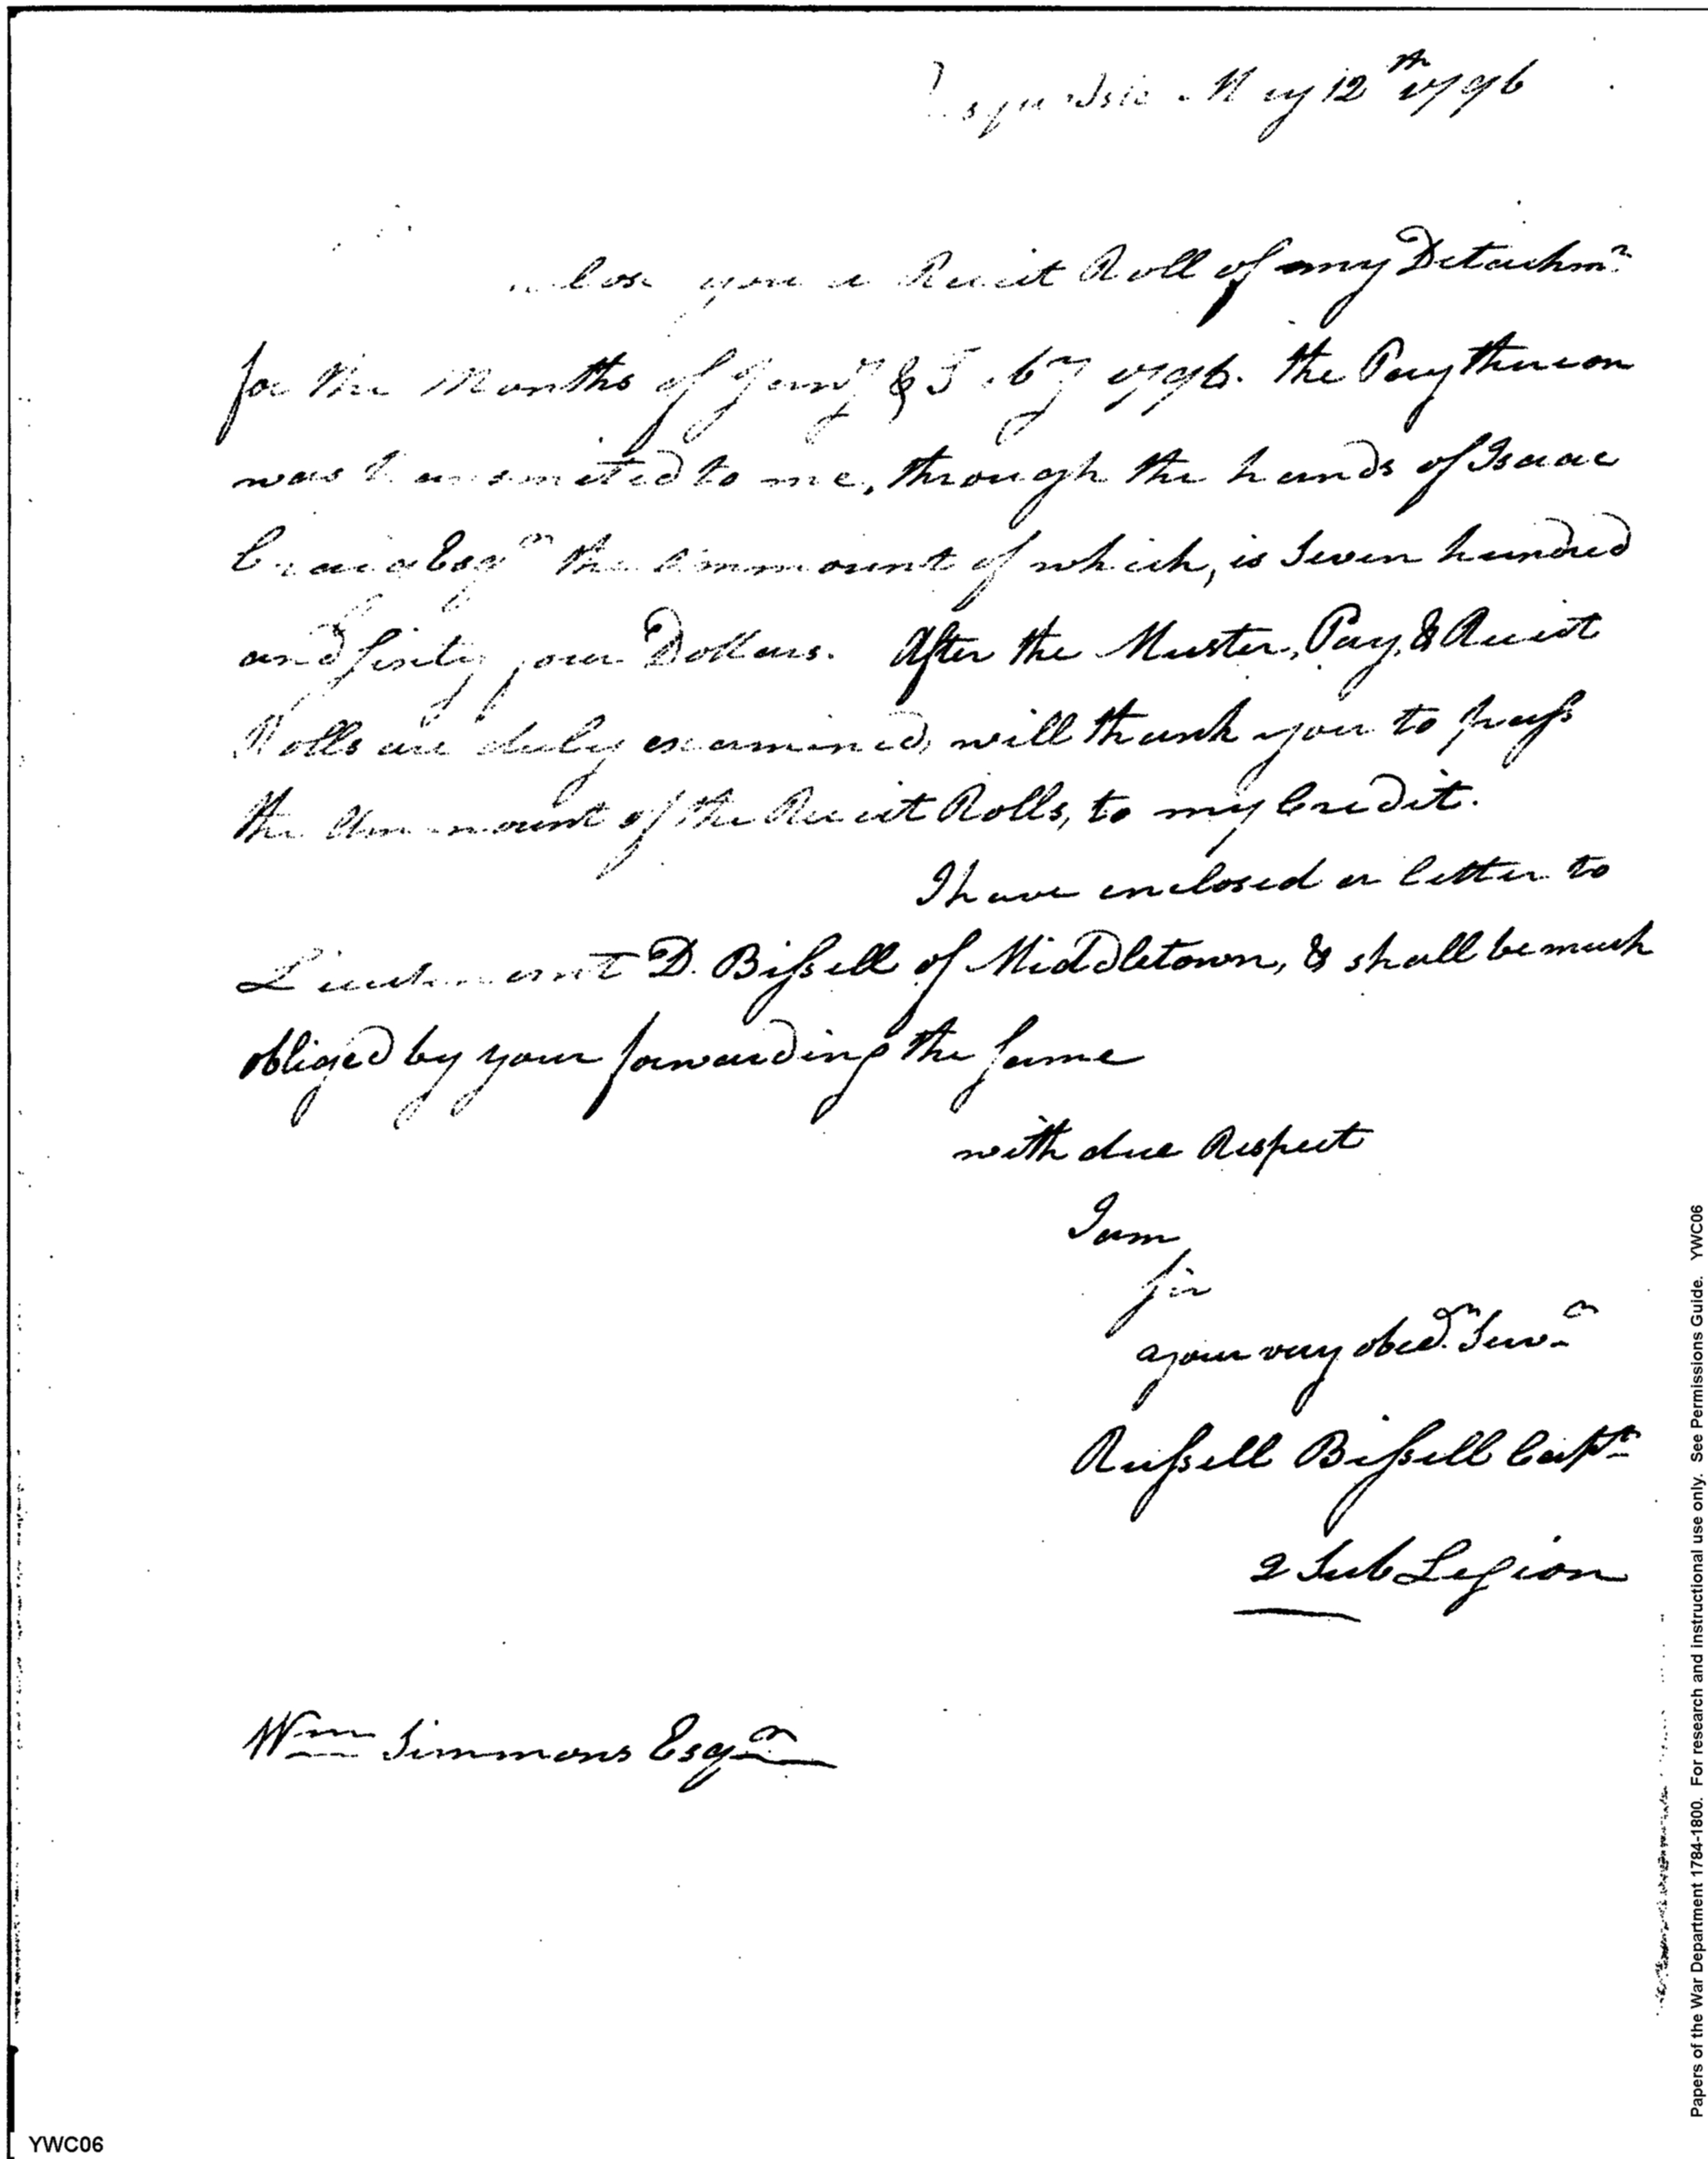 May 12th 1796
you a Receit Roll of my Detachmt
for the Months of Jany & Feby 1796. the Pay thereon
was transmited to me, through the hands of Isaac
Craig Esqr the Ammount of which, is Seven hundred
and Sixty four Dollars. After the Muster, Pay, & Receit
Rolls are duly examined, will thank you to pass
the Ammount of the Receit Rolls, to my Credit.
I have enclosed a letter to
Lieutenant D. Bissell of Middletown, & shall be much
obliged by your forwarding the same
with due Respect
I am
Sir
your very obedt Servt
Russell Bissell Capt
2 Sub Legion
Wm Simmons Esqr
YWC06
Papers of the War Department 1784-1800. For research and instructional use only. See Permissions Guide. YWC06